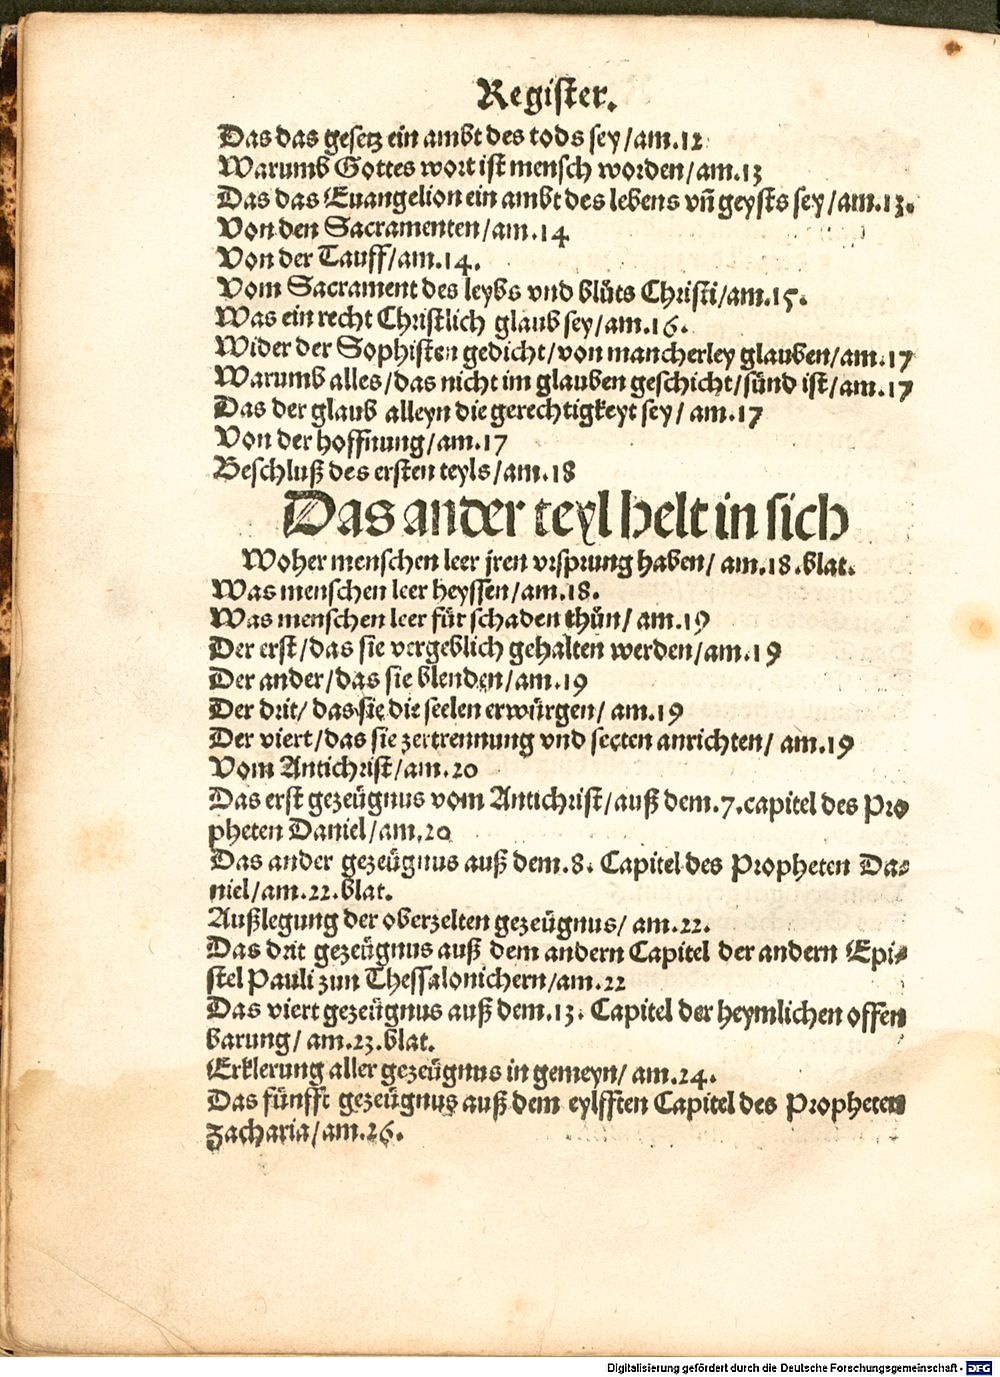 Register.
Das das gesetz ein ambt des tods sey/am.12
Warumb Gottes wort ist mensch worden/am.13
Das das Euangelion ein ambt des lebens vñ geysts sey/am.13.
Von den Sacramenten/am.14
Von der Tauff/am.14.
Vom Sacrament des leybs vnd blůts Christi/am.15.
Was ein recht Christlich glaub sey/am.16.
Wider der Sophisten gedicht/von mancherley glauben/am.17
Warumb alles/das nicht im glauben geschicht/sünd ist/am.17
Das der glaub alleyn die gerechtigkeyt sey/ am.17
Von der hoffnung/am.17
Beschluß des ersten teyls/am.18
Das ander teyl helt in sich
Woher menschen leer jren vrsprung haben/ am.18.blat.
Was menschen leer heyssen/am.18.
Was menschen leer für schaden thůn/ am.19
Der erst/das sie vergeblich gehalten werden/am.19
Der ander/das sie blenden/am.19
Der drit/ das sie die seelen erwürgen/ am.19
Der viert/das sie zertrennung vnd secten anrichten/ am.19
Vom Antichrist/am.20
Das erst gezeügnus vom Antichrist/auß dem.7.capitel des Pro
pheten Daniel/am.20
Das ander gezeügnus auß dem.8. Capitel des Propheten Da-
niel/am.22.blat.
Außlegung der oberzelten gezeügnus/ am.22.
Das drit gezeügnus auß dem andern Capitel der andern Epi-
stel Pauli zun Thessalonichern/am.22
Das viert gezeügnus auß dem.13. Capitel der heymlichen offen
barung/ am.23.blat.
Erklerung aller gezeügnus in gemeyn/ am.24.
Das fünfft gezeügnus auß dem eylfften Capitel des Propheten
Zacharia/am.26.
Digitalisierung gefördert durch die Deutsche Forschungsgemeinschaft - DFG